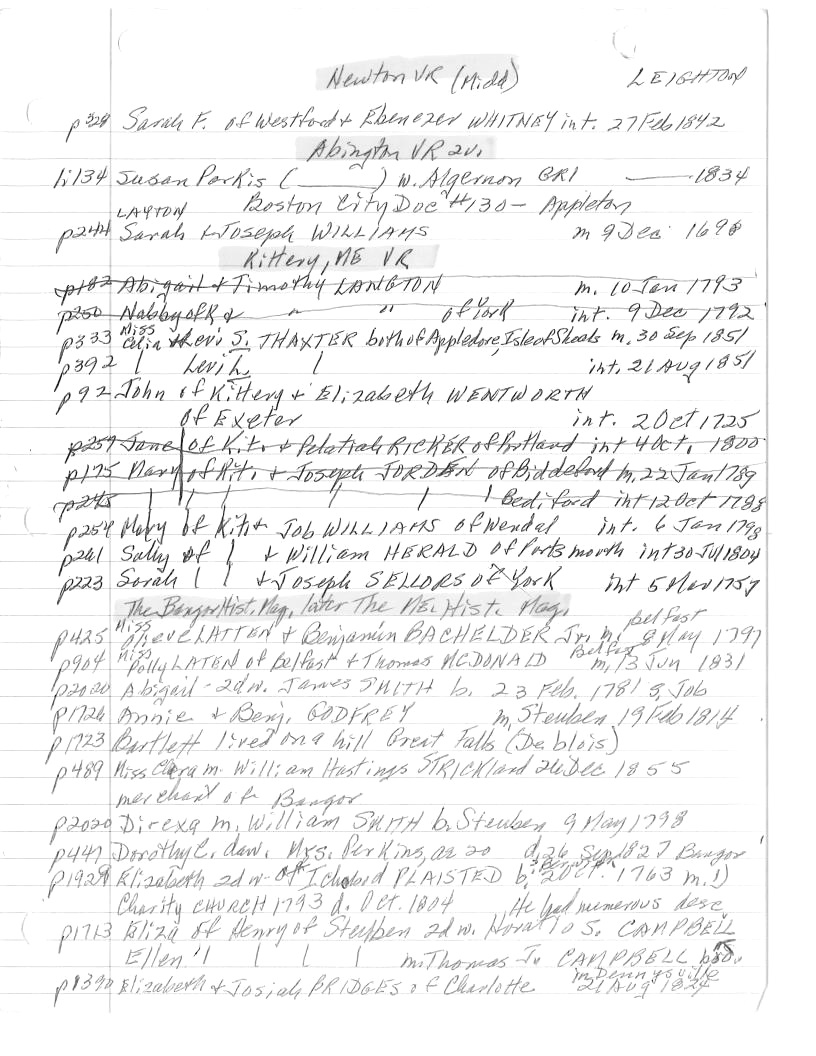 Newton VR (Midd) LEIGHTON
p328 Sarah F. of Westford & Ebenezer WHITNEY int. 27 Feb 1842
Abington VR 2v.
ii134 Susan Parkis (______) w. Algernon GRI ——— 1834
Boston City Doc #130 - Appleton
LAYTON
p244 Sarah & Joseph WILLIAMS m 9 Dec 1698
Kittery, ME VR
p182 Abigail & Timothy LANGTON m. 10 Jan 1793
p250 Nabby of K & " " of York int. 9 Dec 1792
p333 Miss Celia & Levi S. THAXTER both of Appledore, Isle of Shoals m. 30 Sep 1851
p392 | Levi L. | int. 21 Aug 1851
p92 John of Kittery & Elizabeth WENTWORTH
of Exeter int. 2 Oct 1725
p259 Jane of Kit. & Pelatiah RICKER of Portland int 4 Oct. 1800
p175 Mary of Kit. & Joseph JORDEN of Biddeford m. 22 Jan 1789
p245 | | | | | | Bediford int 12 Oct 1788
p254 Mary of Kit & Job WILLIAMS of Wendal int. 6 Jan 1798
p241 Sally of | & William HERALD of Portsmouth int 30 Jul 1804
p223 Sarah | | & Joseph SELLORS of York int 5 Nov 1757
The Bangor Hist. Mag. later The ME Hist. Mag.
p425 Miss Olieve LATTEN & Benjamin BACHELDER Jr. m. Belfast 8 May 1797
p904 Miss Polly LATEN of Belfast & Thomas McDONALD Belfast m. 13 Jun 1831
p2020 Abigail - 2d w. James SMITH b. 23 Feb. 1781 s. Job
p1726 Annie & Benj. GODFREY m. Steuben 19 Feb 1814
p1723 Bartlett lived on a hill Great Falls (Deblois)
p489 Miss Clara m. William Hastings STRICKland 26 Dec 1855
merchant of Bangor
p2020 Direxa m. William SMITH b. Steuben 9 May 1798
p447 Dorothy C. daw. Mrs. Perkins, ae 20 d. 26 Sep 1827 Bangor
p1929 Elizabeth 2d w. of Ichabod PLAISTED b. Oct. 1763 m. 1)
Charity CHURCH 1793 d. Oct. 1804 He had numerous desc
p1713 Eliza of Henry of Steuben 2d w. Horatio S. CAMPBELL
Ellen " | | | | m. Thomas J. CAMPBELL
p1390 Elizabeth & Josiah BRIDGES of Charlotte m. Dennysville 21 Aug 1824